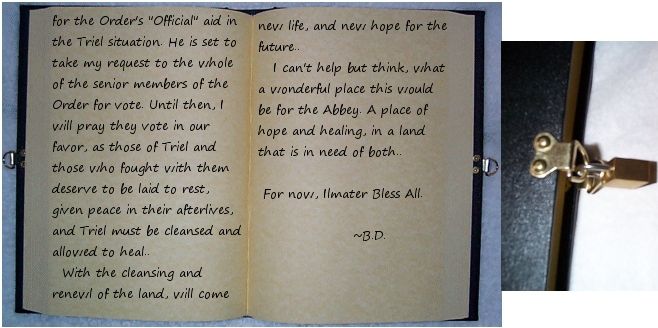 for the Order's "Official" aid in
the Triel situation. He is set to
take my request to the whole
of the senior members of the
Order for vote. Until then, I
will pray they vote in our
favor, as those of Triel and
those who fought with them
deserve to be laid to rest,
given peace in their afterlives,
and Triel must be cleansed and
allowed to heal..
With the cleansing and
renewl of the land, will come
new life, and new hope for the
future..
I can't help but think, what
a wonderful place this would
be for the Abbey. A place of
hope and healing, in a land
that is in need of both..
For now, Ilmater Bless All.
~B.D.